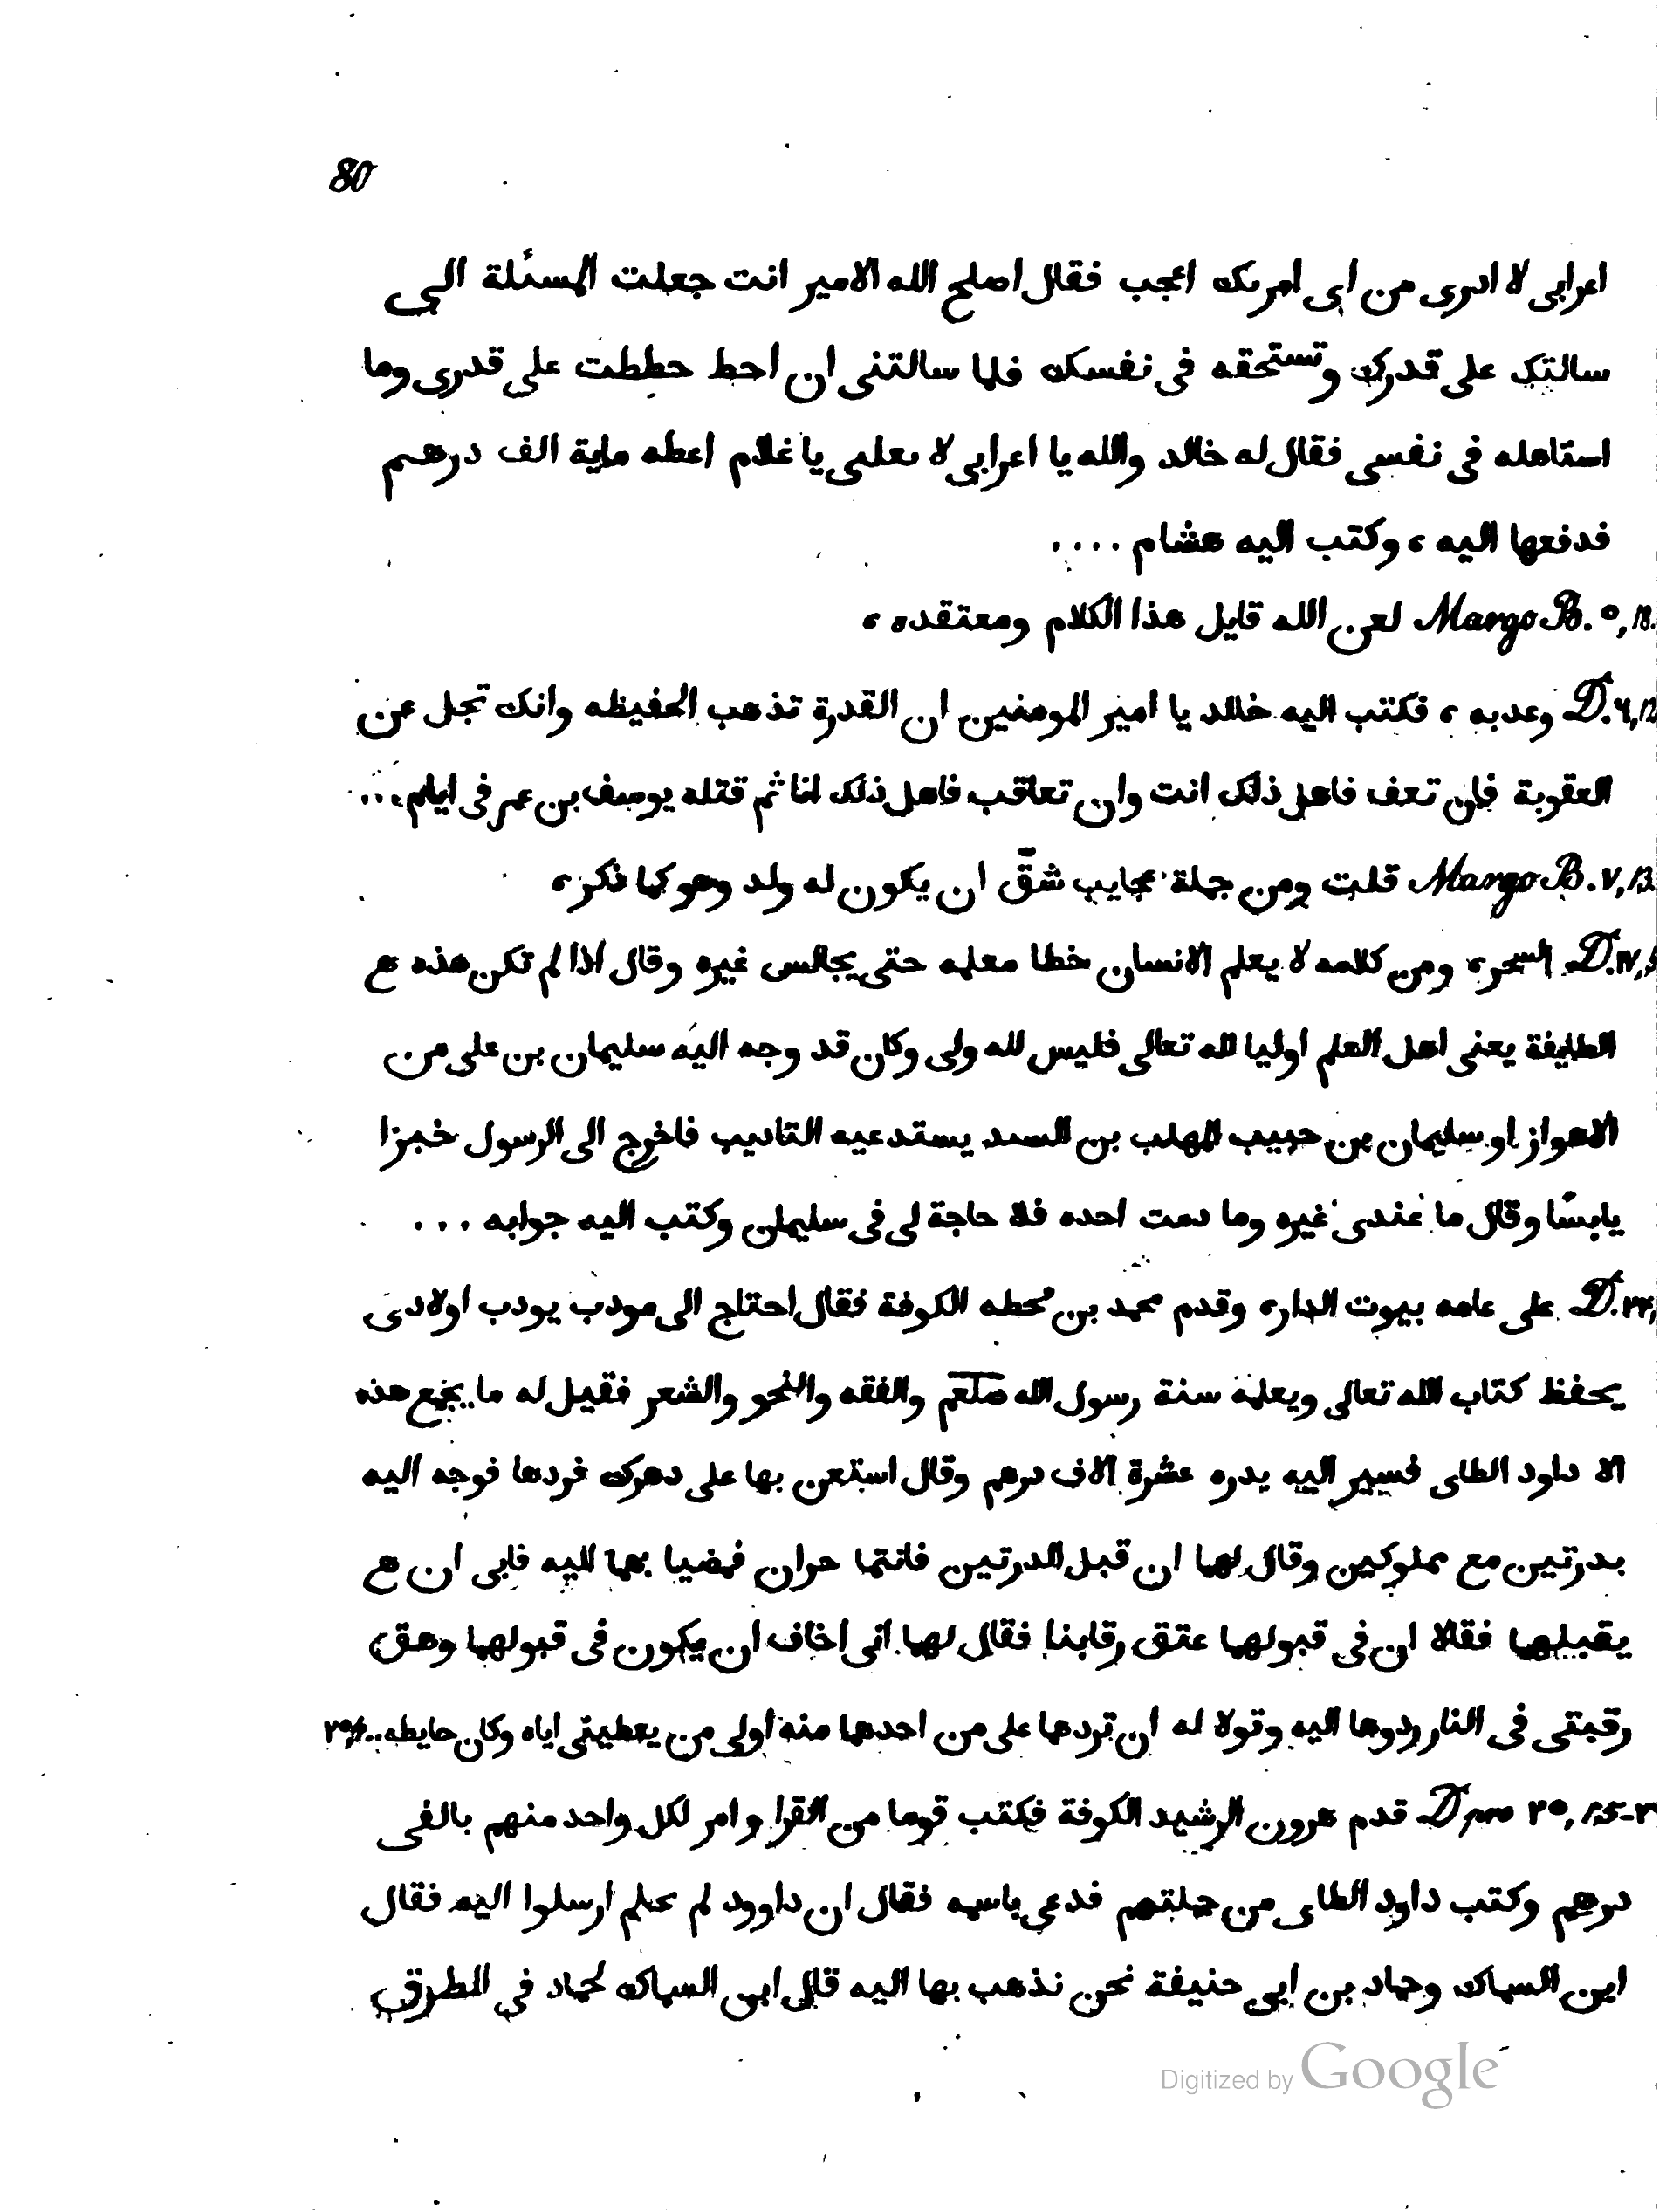 80
اعرابى لا ادرى من اى امريك اعجب فقال اصلح الله الامير انت جعلت المسئلة الى
سالتك على قدرك وتستحقه فى نفسك فلما سالتنى ان احط حططت على قدرى وما
استاهله فى نفسى فقال له خالد والله يا اعرابى لا ىعلىى يا غلام اعطه ماية الف درهم
فدفعها اليه ، وكتب اليه هشام ....
Margo B. ٥,18. لعن الله قايل هذا الكلام ومعتقده ،
D. ٦,12 وعدبه ، فكتب اليه خالد يا امير المومنين ان القدرة تذهب الحفيظه وانك تجل عن
العقوبة فان تعف فاهل ذلك انت وان تعاقب فاهل ذلك انا ثم قتله يوسف بن عمر فى ايام ...
Margo B. ٧,13. قلت ومن جملة عجايب شقّ ان يكون له ولد وهو كما ذكر ،
D. ١٧, السحر ، ومن كلامه لا يعلم الانسان خطا معلمه حتى يجالس غيره وقال اذا لم تكن هذه ع
الطايفة يعنى اهل العلم اوليا لله تعالى فليس لله ولى وكان قد وجه اليه سليمان بن على من
الاهواز او سليمان بن حبيب المهلب بن السىد يستدعيه التاديب فاخرج الى الرسول خبزا
يابسًا وقال ما عندى غيره وما دمت احده فلا حاجة لى فى سليمان وكتب اليه جوابه ...
D. ٢٢, على عامه بيوت الدار ، وقدم محمد بن محطه الكوفة فقال احتاج الى مودب يودب اولادى
يحفظ كتاب الله تعالى ويعلمه سنة رسول الله صلعم والفقه والنحو والشعر فقيل له ما يجمع هذه
الا داود الطاى فسير اليه بدره عشرة الاف درهم وقال استعن بها على دهرك فردها فوجه اليه
بدرتين مع مملوكين وقال لهما ان قبل البدرتين فانتما حران فمضيا بهما اليه فابى ان ع
يقبلهما فقالا ان فى قبولهما عتق رقابنا فقال لهما انى اخاف ان يكون فى قبولهما وهق
رقبتى فى النار ردوها اليه وقولا له ان تردها على من احدها منه اولى من يعطينى اياه وكان حايطه ..
D pro ٢٥, 15-٢ قدم هرون الرشيد الكوفة فكتب قوما من القرا وامر لكل واحد منهم بالفى
درهم وكتب داود الطاى من جملتهم فدعى باسمه فقال ان داوود لم ىعلم ارسلوا اليه فقال
ابن السماك وحماد بن ابى حنيفة نحن نذهب بها اليه قال ابن السماك لحماد فى الطرق
Digitized by Google